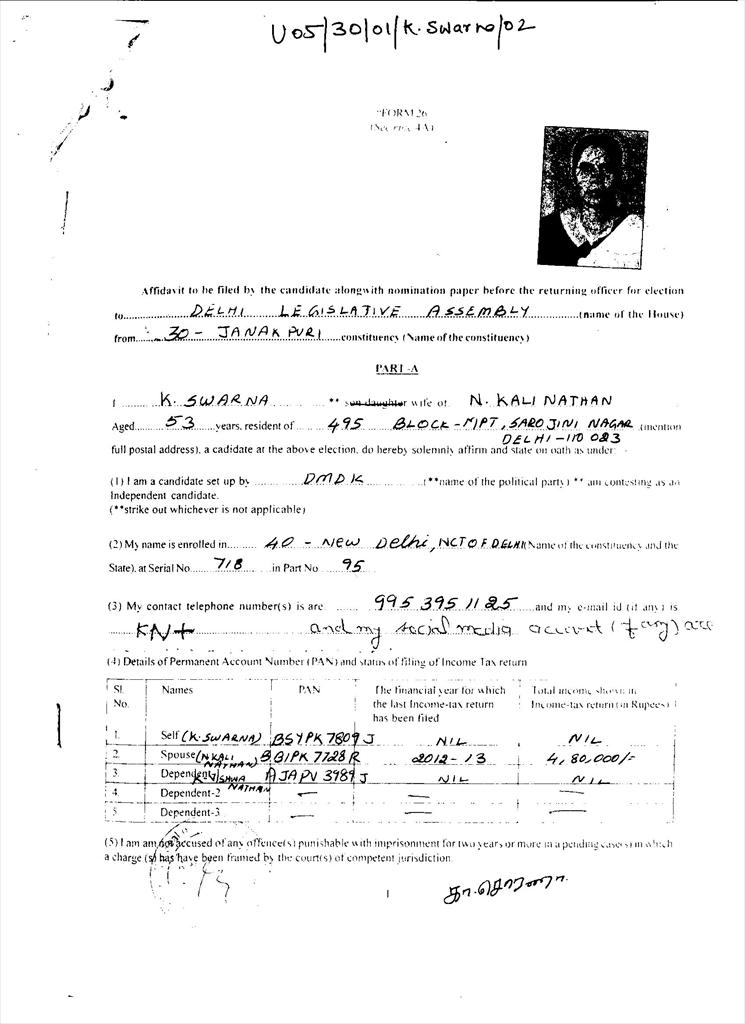 U05/30/01/K. Swarna/02
"FORM 26
(See rule 4A)
Affidavit to be filed by the candidate alongwith nomination paper before the returning officer for election
to DELHI LEGISLATIVE ASSEMBLY (name of the House)
from 30 - JANAKPURI constituency (Name of the constituency)
PART-A
I K. SWARNA ** son daughter wife of N. KALI NATHAN
Aged 53 years, resident of 495 BLOCK-MPT, SAROJINI NAGAR (mention
DELHI-110 023
full postal address), a cadidate at the above election, do hereby solemnly affirm and state on oath as under: -
(1) I am a candidate set up by DMDK (**name of the political party) ** am contesting as an
Independent candidate.
(**strike out whichever is not applicable)
(2) My name is enrolled in 40 - NEW Delhi, NCT OF DELHI (Name of the constituency and the
State), at Serial No 718 in Part No 95
(3) My contact telephone number(s) is are 995 395 1125 and my e-mail id (if any) is
and my social media account (if any) are
(4) Details of Permanent Account Number (PAN) and status of filing of Income Tax return
Sl. No. Names PAN The financial year for which the last Income-tax return has been filed Total income shown in Income-tax return (in Rupees)
1. Self (K. SWARNA) BSYPK 7809 J NIL NIL
2. Spouse (N KALI NATHAN) BBIPK 7728 R 2012-13 4,80,000/-
3. Dependent-1 K VISHWA NATHAN AJAPV 3989 J NIL NIL
4. Dependent-2 — — —
5. Dependent-3 — — —
(5) I am am not accused of any offence(s) punishable with imprisonment for two years or more in a pending case(s) in which
a charge (s) has have been framed by the court(s) of competent jurisdiction.
1
கா.சொர்ணா